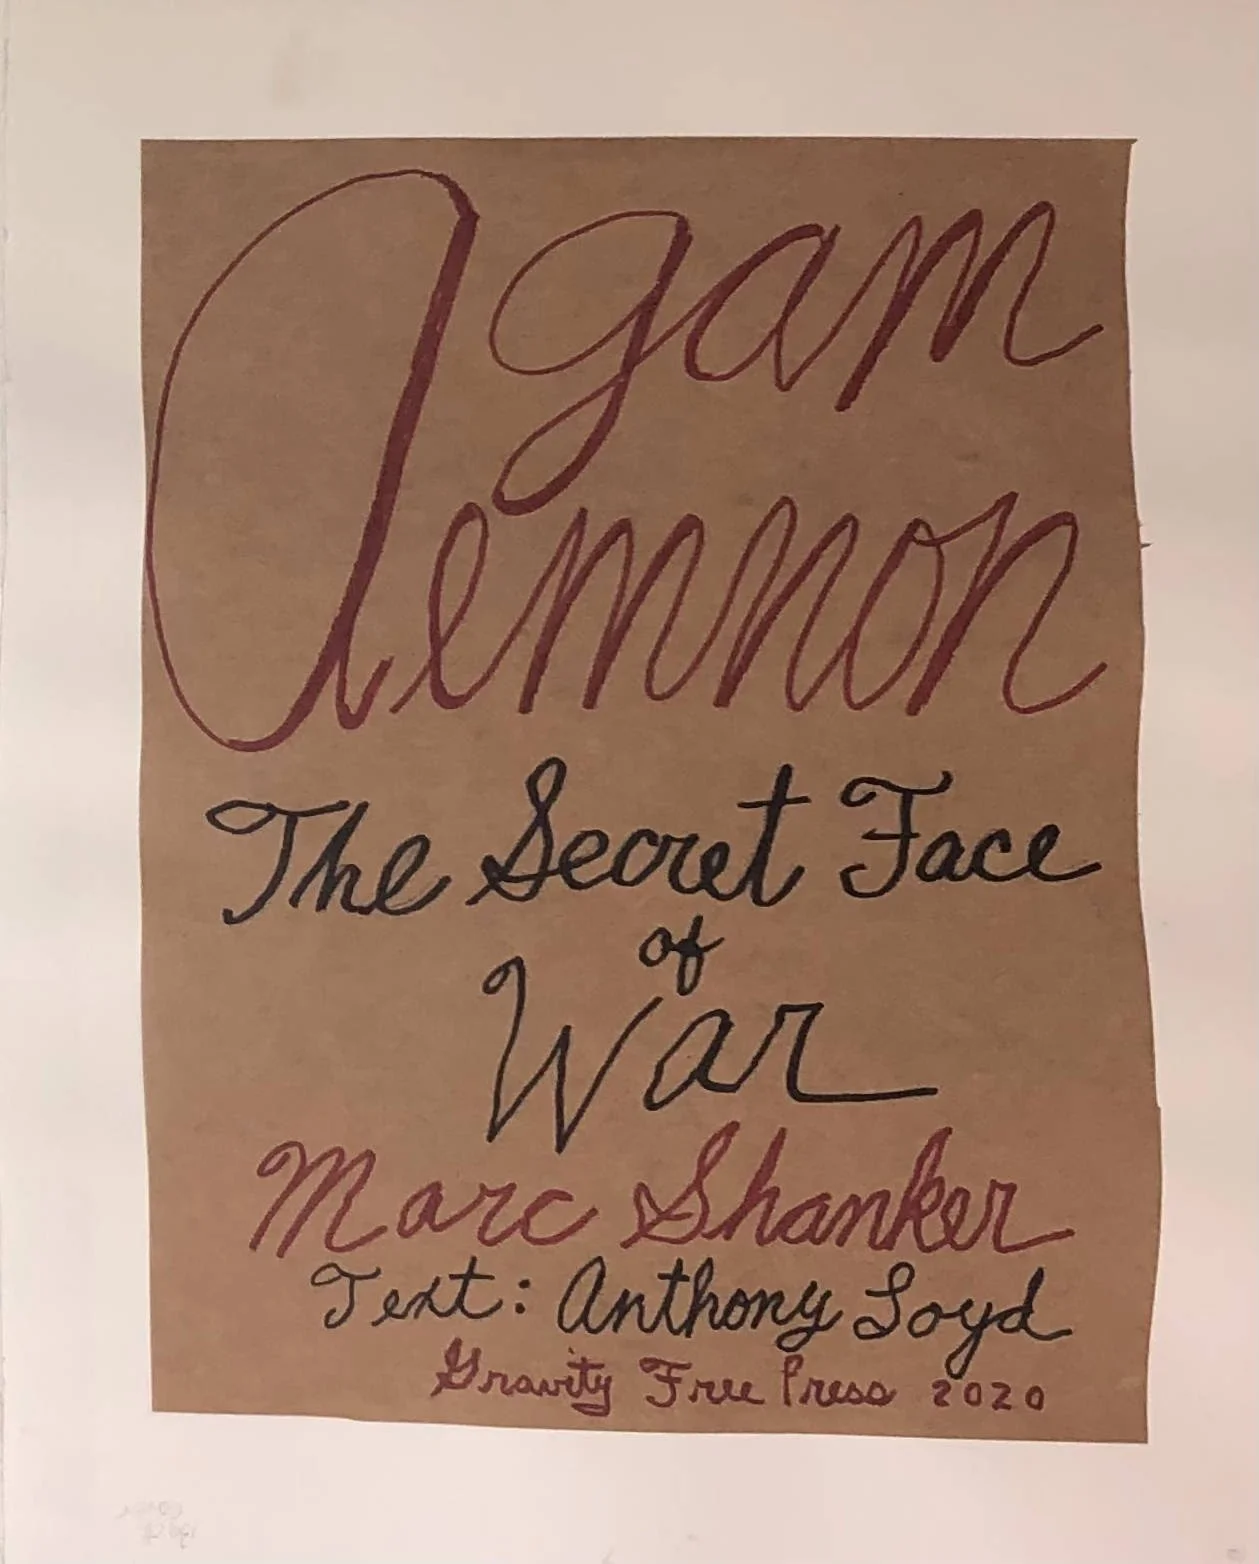 Agam
emnon
The Secret Face
of
War
Marc Shanker
Text: Anthony Loyd
Gravity Free Press 2020